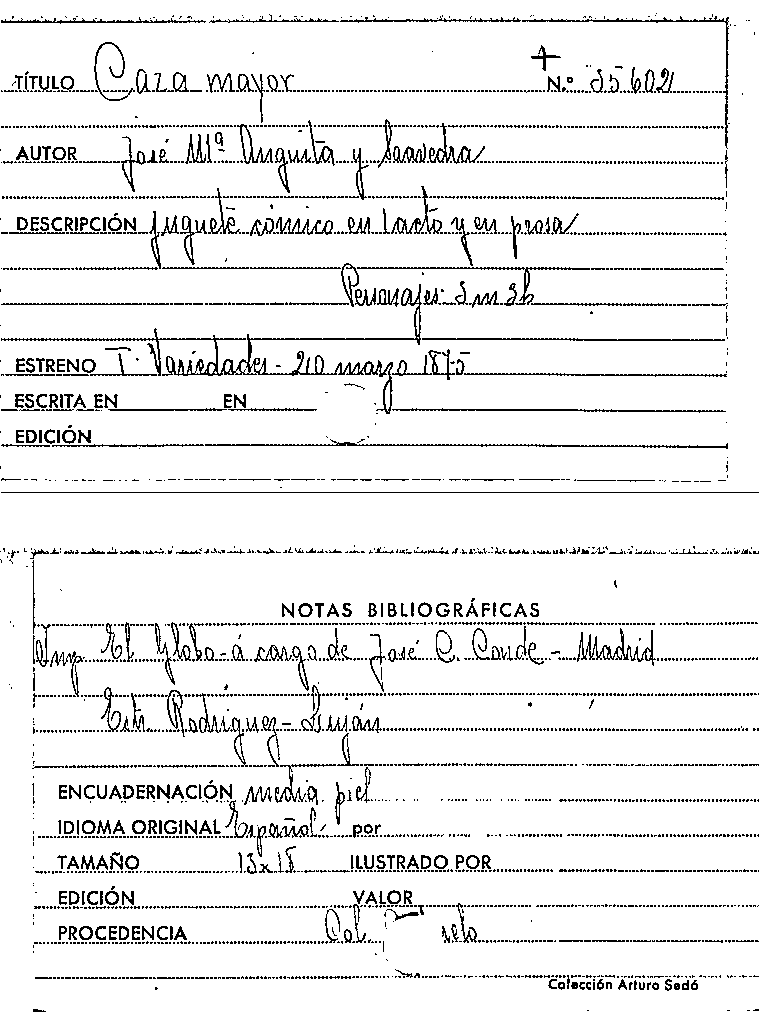 TÍTULO Caza mayor N.º 35602
AUTOR José Mª Anguita y Saavedra
DESCRIPCIÓN juguete cómico en 1 acto y en prosa
Personajes: 3 m 3 h
ESTRENO T. Variedades - 20 marzo 1875
ESCRITA EN EN
EDICIÓN
NOTAS BIBLIOGRÁFICAS
Imp El Globo - á cargo de José C. Conde - Madrid
Rodriguez - Luján
ENCUADERNACIÓN media piel
IDIOMA ORIGINAL Español por
TAMAÑO 13 x 18 ILUSTRADO POR
EDICIÓN VALOR
PROCEDENCIA Col.
Colección Arturo Sedó